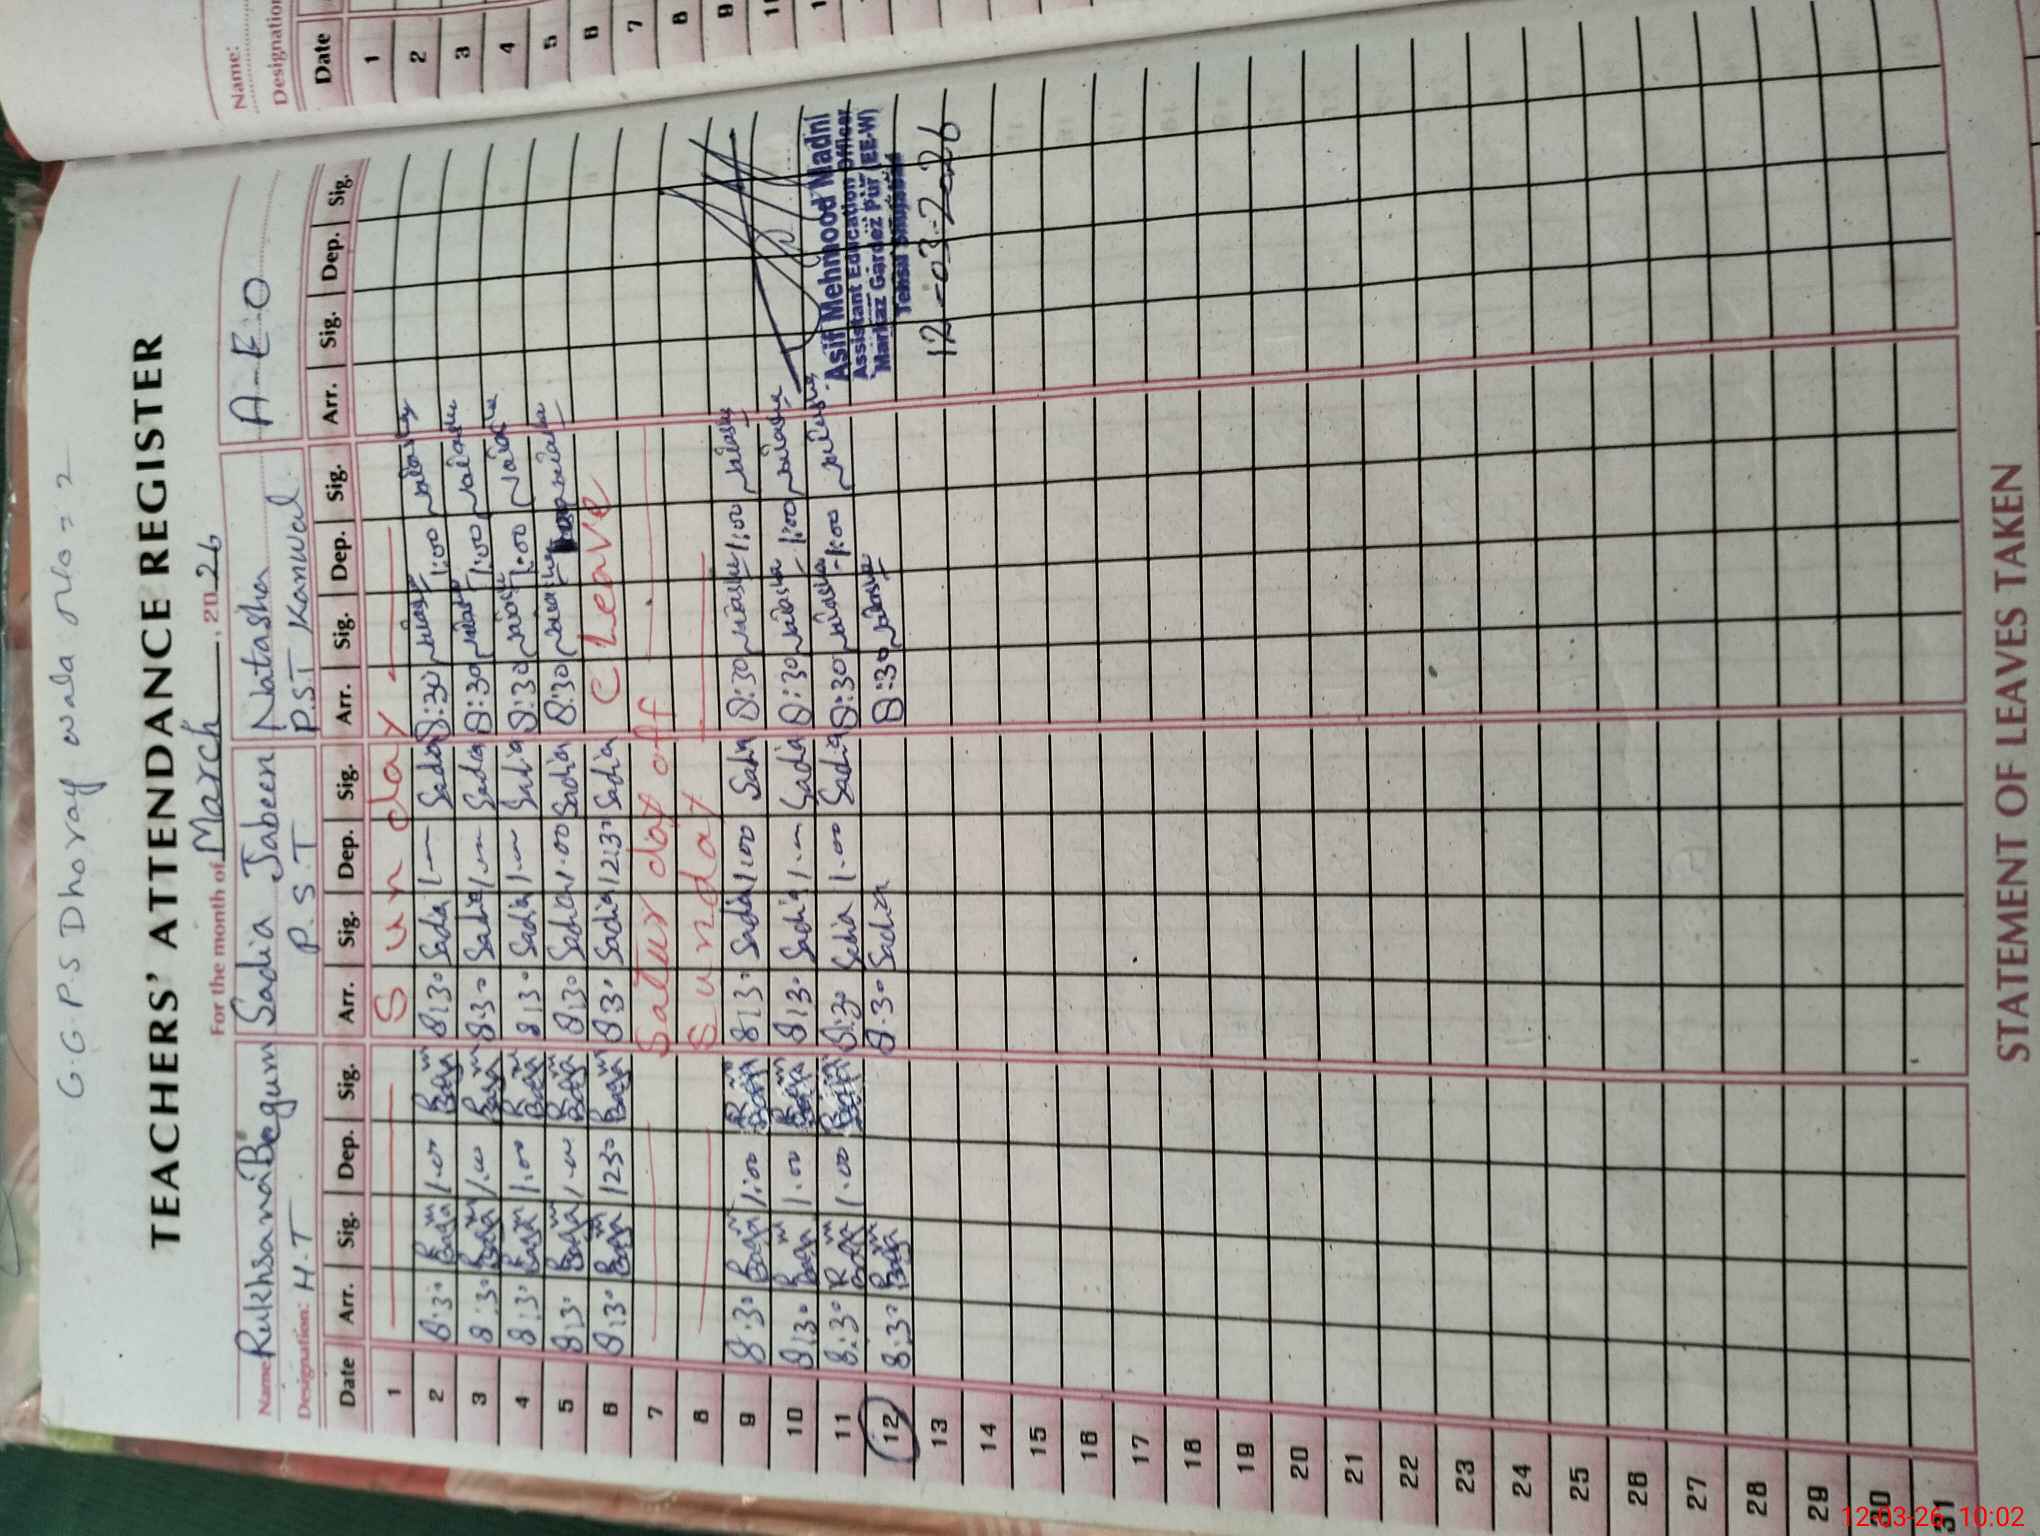 G.G.P.S Dhoray wala
TEACHERS' ATTENDANCE REGISTER
For the month of March, 2026
Name: Rukhsana Begum Sadia Jabeen Natasha A-E-O
Designation: H.T P.S.T P.S.T Kanwal
Date Arr. Sig. Dep. Sig. Arr. Sig. Dep. Sig. Arr. Sig. Dep. Sig. Arr. Sig. Dep. Sig.
1 Sunday
2 8:30 R Begum 1.00 R Begum 8:30 Sadia 1- Sadia 8:30 Natasha 1:00 Natasha
3 8:30 R Begum 1.00 R Begum 8:30 Sadia 1.- Sadia 8:30 Natasha 1:00 Natasha
4 8:30 R Begum 1.00 R Begum 8:30 Sadia 1.- Sadia 8:30 Natasha 1:00 Natasha
5 8:30 R Begum 1.00 R Begum 8:30 Sadia 1.00 Sadia 8:30 Natasha Natasha
6 8:30 R Begum 1230 R Begum 8:30 Sadia 1230 Sadia C Leave
7 Saturday off
8 Sunday
9 8:30 R Begum 1:00 R Begum 8:30 Sadia 1:00 Sadia 8:30 Natasha 1:00 Natasha
10 8:30 R Begum 1.00 R Begum 8:30 Sadia 1.- Sadia 8:30 Natasha 1:00 Natasha
11 8:30 R Begum 1.00 R Begum 8:30 Sadia 1.00 Sadia 8:30 Natasha 1:00 Natasha
12 8:30 R Begum 8:30 Sadia 8:30 Natasha
Asif Mehmood Madni
Assistant Education Officer
Markaz Gardez Pur (EE-W)
Tehsil Shujabad
12-03-2026
13
14
15
16
17
18
19
20
21
22
23
24
25
26
27
28
29
30
31
STATEMENT OF LEAVES TAKEN
Name:
Designation
Date
1
2
3
4
5
6
7
8
9
12-03-26 10:02